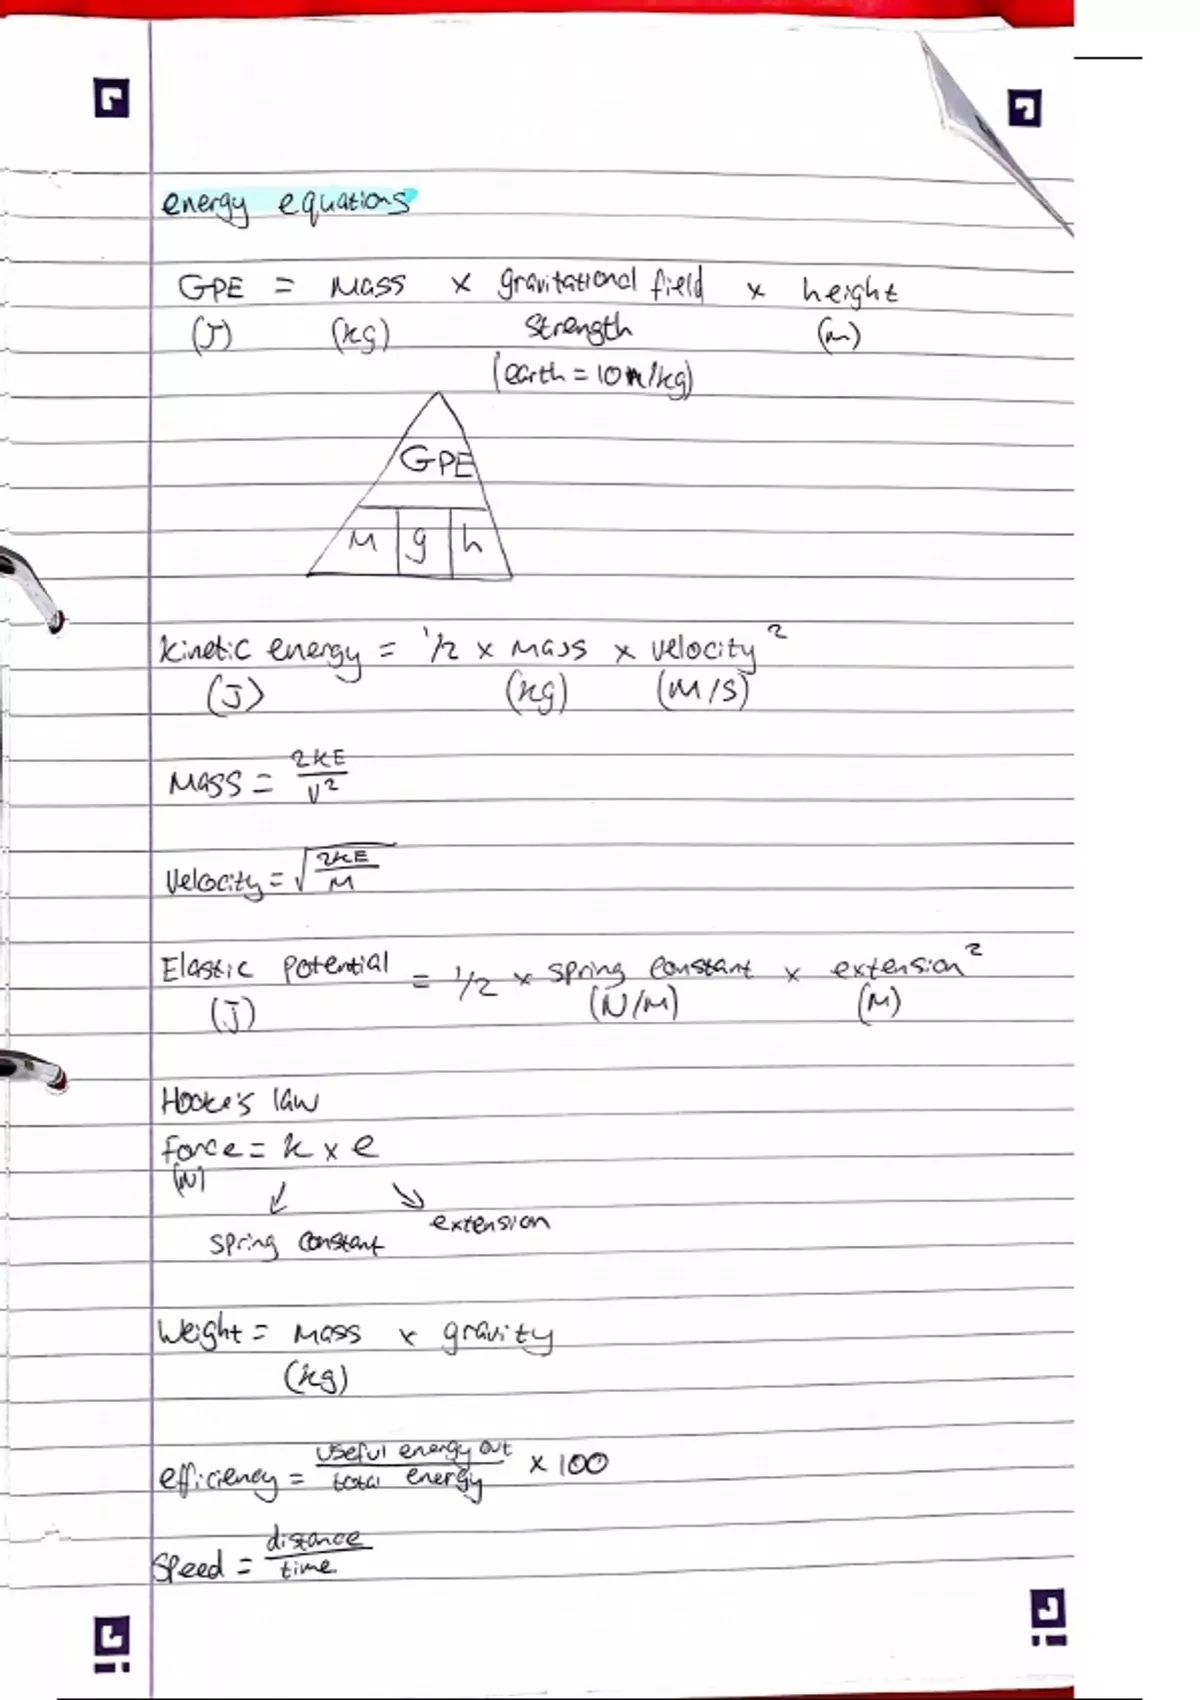 energy equations
GPE = Mass × gravitational field × height
(J) (kg) strength (m)
(earth = 10N/kg)
GPE
M g h
Kinetic energy = 1/2 × Mass × velocity²
(J) (kg) (M/S)
Mass = 2KE
V²
Velocity = √ 2KE
M
Elastic potential = 1/2 × spring constant × extension²
(J) (N/M) (M)
Hooke's law
Force = k × e
(N)
extension
spring constant
Weight = Mass × gravity
(kg)
efficiency = useful energy out × 100
total energy
Speed = distance
time